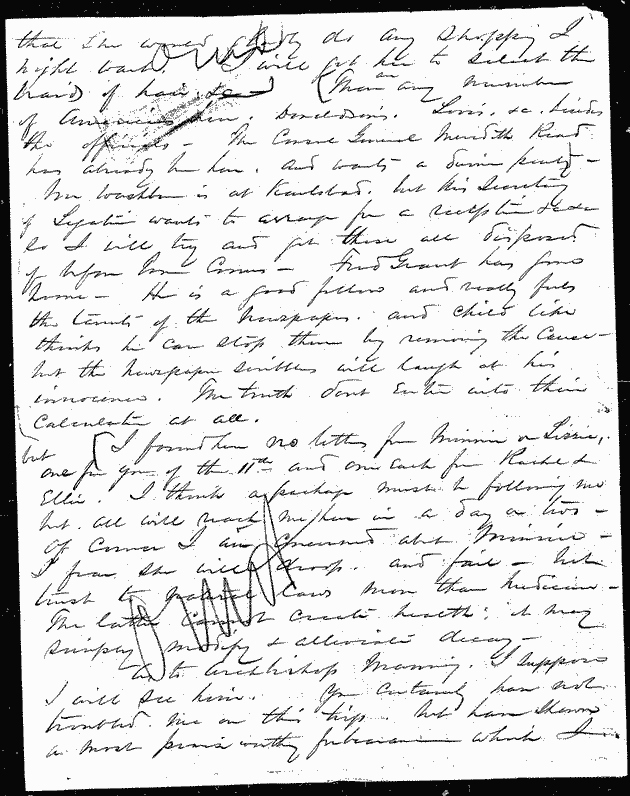 that she would gladly do any shopping I
might want. I will get her to select the
braid of hair &c (There are any number
of Americans here. Donaldson's. Lewis. &c. besides
the officials - The Consul General Meredith Read
has already been here. and wants a dinner party -
Mr Washburn is at Karlsbad. but his Secretary
of Legation wants to arrange for a reception &c &c
So I will try and get these all disposed
of before Tom Comes - Fred Grant has gone
home - He is a good fellow and really feels
the taunts of the Newspapers. and child like
thinks he can stop them by removing the Cause -
but the newspaper scribblers will laugh at his
innocence. The truth dont Enter into their
Calculation at all.
but I found here no letters from Minnie or Lizzie,
one from you of the 11th and one each from Rachel &
Ellie. I think a package must be following me
but all will reach me here in a day or two -
Of Course I am concerned about Minnie -
I fear she will droop. and fail -
trust to natural laws more than medicine -
The latter cannot create health; it may
simply modify & alleviate decay -
as to Archbishop Manning. I suppose
I will see him. You certainly have not
troubled me on this trip. but have shown
a most praiseworthy forbearance which I